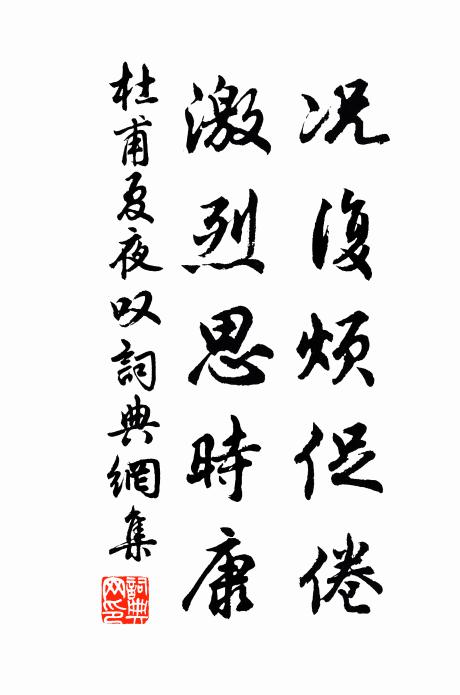 况復煩促倦
激烈思時康
杜甫夏夜叹詞典網集
詞典网印